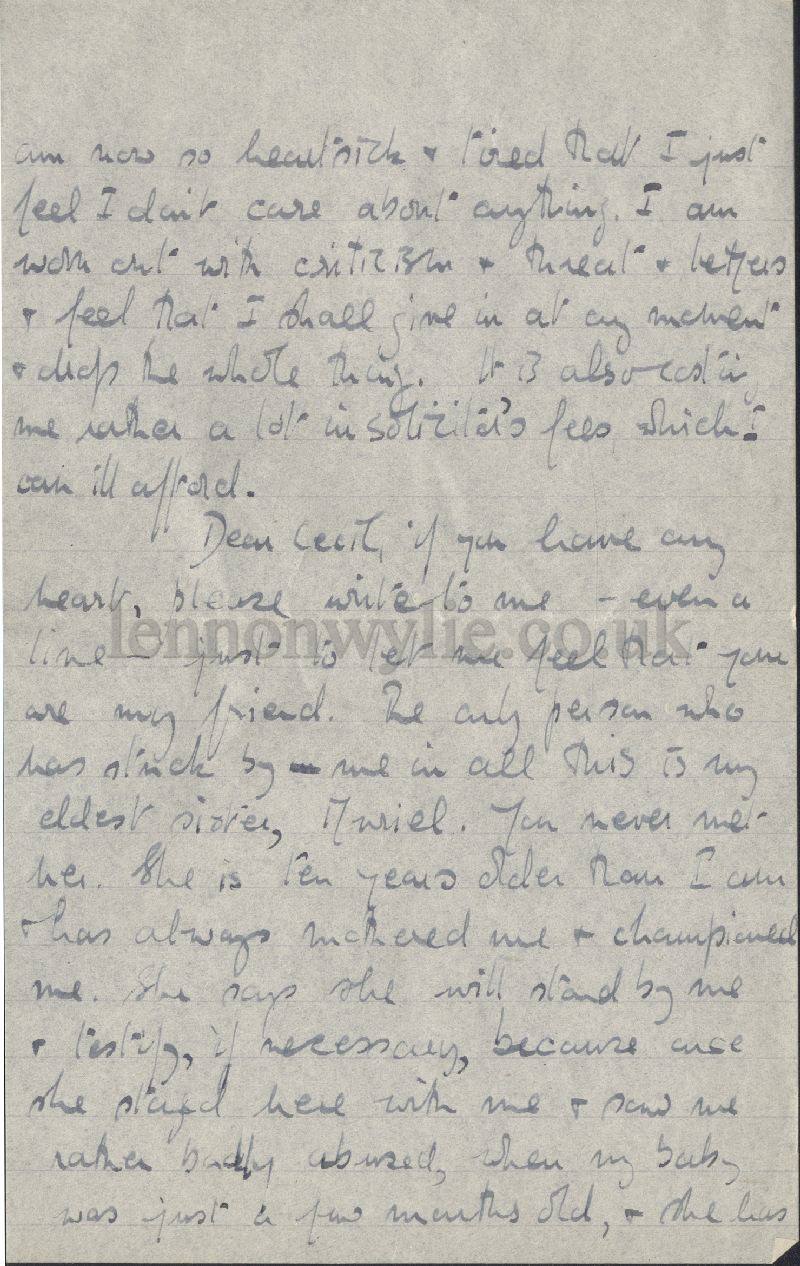 am now so heartsick & tired that I just
feel I don't care about anything. I am
worn out with criticism & threat & letters
& feel that I shall give in at any moment
& drop the whole thing. It is also costing
me rather a lot in solicitor's fees, which I
can ill afford.
Dear Cecil, if you have any
heart, please write to me - even a
line - just to let me feel that you
lennonwylie.co.uk
are my friend. The only person who
has stuck by me in all this is my
eldest sister, Muriel. You never met
her. She is ten years older than I am
& has always mothered me & championed
me. She says she will stand by me
& testify, if necessary, because once
she stayed here with me & saw me
rather badly abused, when my baby
was just a few months old, & she has